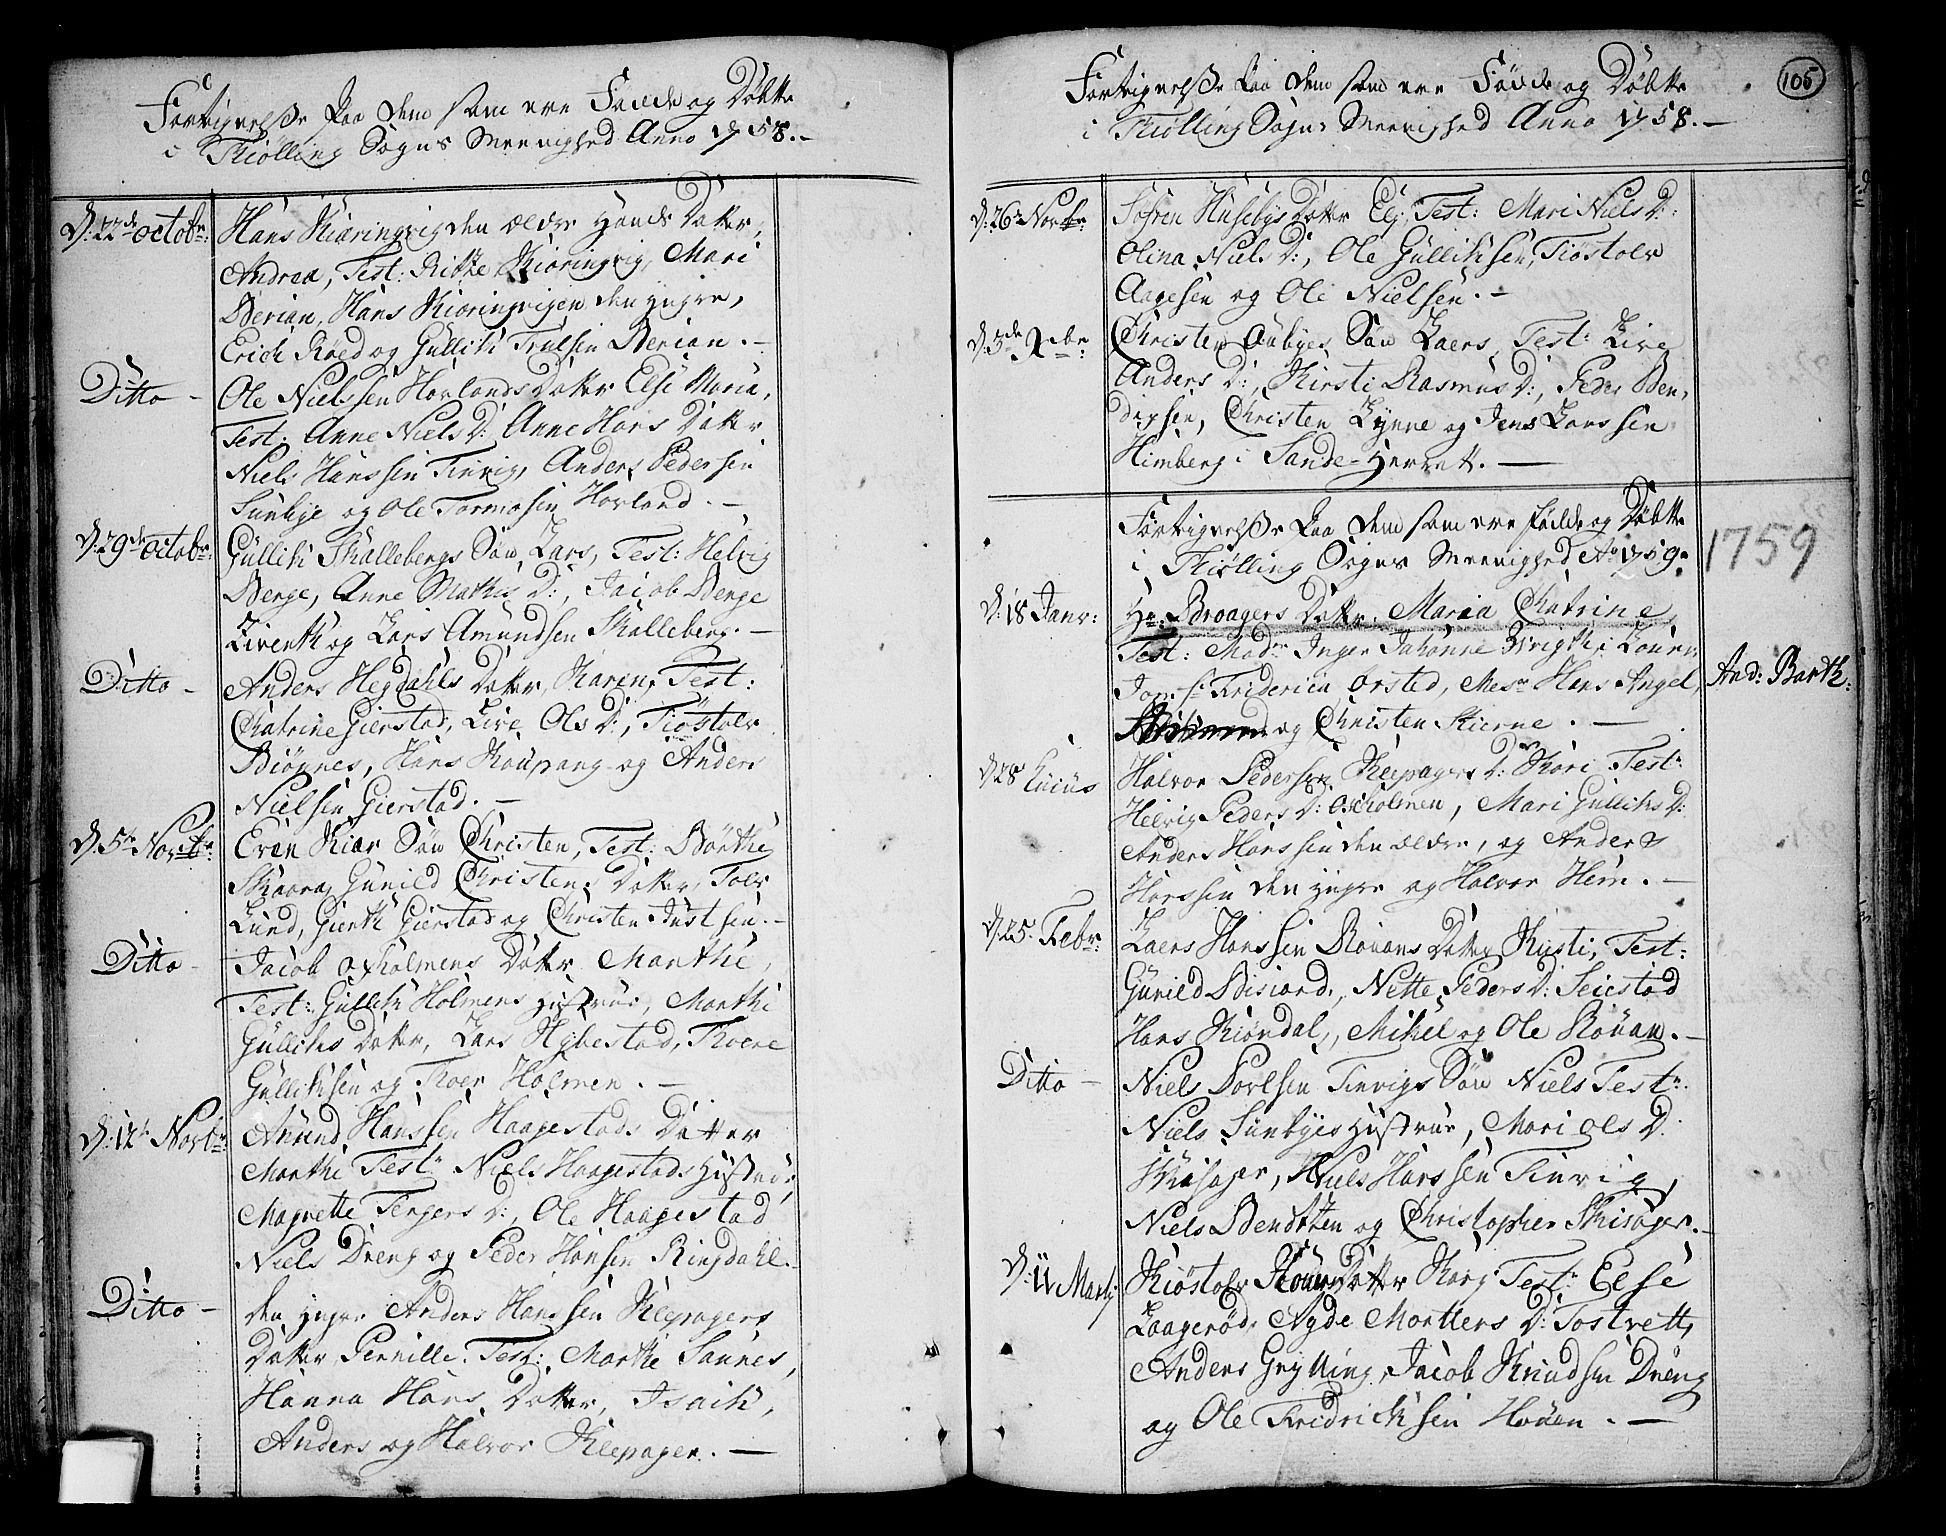 Fortegnelse paa dem som ere Fødde og Døbte
i Tiølling Sogns Meenighed Anno 1758.
D: 22de octobr:
Hans Kiøringvig den ældre Hands Datter,
Andrea, Test: Kiøringvig, Mari
Berian, Hans Kiøringvigen den yngre,
Erich Røed og Gullich Trulsen Berian.
Ditto
Ole Nielssen Hovlands Datter Else Maria,
Test: Anne Niels D: Anne Hans Datter
Niels Hanssen Tinvig, Anders Pedersen
Sunbye og Ole Tormosen Hovland.
D: 29de octobr:
Gullich Skallebergs Søn Lars, Test: Helvig
Berge, Anne Mathis D:, Jacob Berge
Livent og Lars Amundsen Skalleberg.
Ditto
Anders Hegdahls Datter, Karen, Test:
Chatrine Gierstad, Live Ols D:, Tiøstolv
Biøgnes, Hans Koupang og Anders
Nielsen Gierstad.
D: 5te Novbr:
Even Kiær Søn Christen, Test: Børthe
Skaara, Gunild Christens Datter, Tolv
Lund, Gierth Gierstad og Christen Justsen.
Ditto
Jacob oxholmens Datter Marthe,
Test: Gullich Holmens Hustrue, Marthe
Gullichs Datter, Lars Hybestad, Thore
Gullichsen og Thoer Holmen.
D: 12te Novbr:
Amund Hanssen Haagestads Datter
Marthe Test: Niels Haagestads Hustrue,
Magrette Tengers D:, Ole Haagestad
Niels Dreng og Peder Hansen Ringdahl.
Ditto
den yngre Anders Hanssen Klepagers
Datter Pernille. Test: Marthe Sannes,
Hanna Hans Datter, Isach,
Anders og Halvor Klepager.
105
Fortegnelse paa dem som ere Fødde og Døbte
i Tiølling Sogns Meenighed Anno 1758.
D: 26te Novbr:
Søfren Husebys Datter Test: Mari Niels D:
Olina Niels D:, Ole Gullichsen, Tiøstolv
Aagesen og Ole Nielsen.
D: 3de Xbr
Christen Aabyes Søn Laers, Test: Live
Anders D:, Kirsti Rasmus D:, Peder Ben,
dixsen, Christen Lynne og Jens Larssen
Himberg i Sande-Herret.
Fortegnelse paa dem som ere Fødde og Døbte
i Tiølling Sogns Meenighed Ao 1759.
1759
D: 18 Janr:
Hr: Broagers Datter: Maria Chatrine
Test: Madm Inger Johanne
Jomf: Fridericia Ørsted, Mesr Hans Angel,
og Christen Stierne.
And: Barth:
D: 28
Halvor Pedersen Klepagers D: Kari Test:
Helvig Peders D: oxholmen, Mari Gullichs D:
Anders Hanssen den ældre, og Anders
Hanssen den yngre og Halvor Hem.
D: 25 Febr:
Laers Hanssen Rouans Datter Kirsti, Test:
Gunild Bisiord, Nette Peders D: Seiestad
Hans Kiøndal, Mikel og Ole Rouan.
Ditto
Niels Povlsen Tinvigs Søn Niels Test:
Niels Sunbyes Hustrue, Mari ols D:
Skisager, Niels Hanssen Tinvig,
Niels Bendixen og Christopher Skisager.
D: 11 Martj
Kiøstolv Datter Test: Else
Laagerød, Agde Morttens D: Tostvett,
Anders Grytting, Jacob Knudsen Dreng
og Ole Fridrichsen Houen.